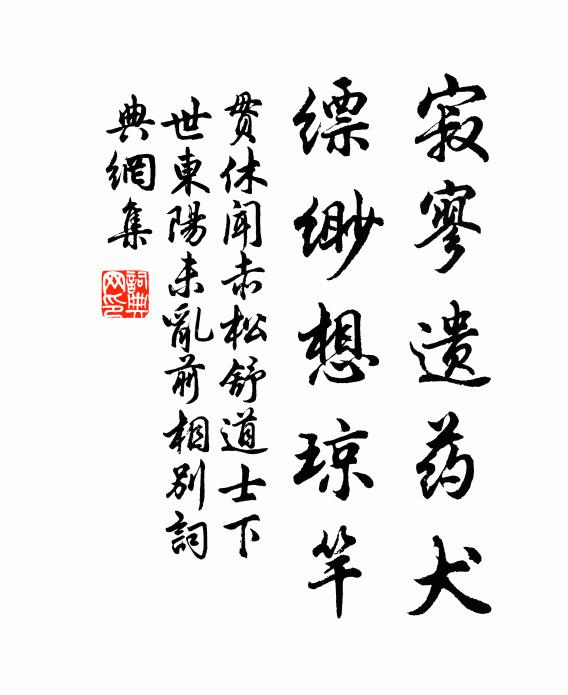 寂寥遗药犬
缥缈想琼竿
贯休闻赤松舒道士下
世東陽未亂前相别詞
典網集
詞典网印